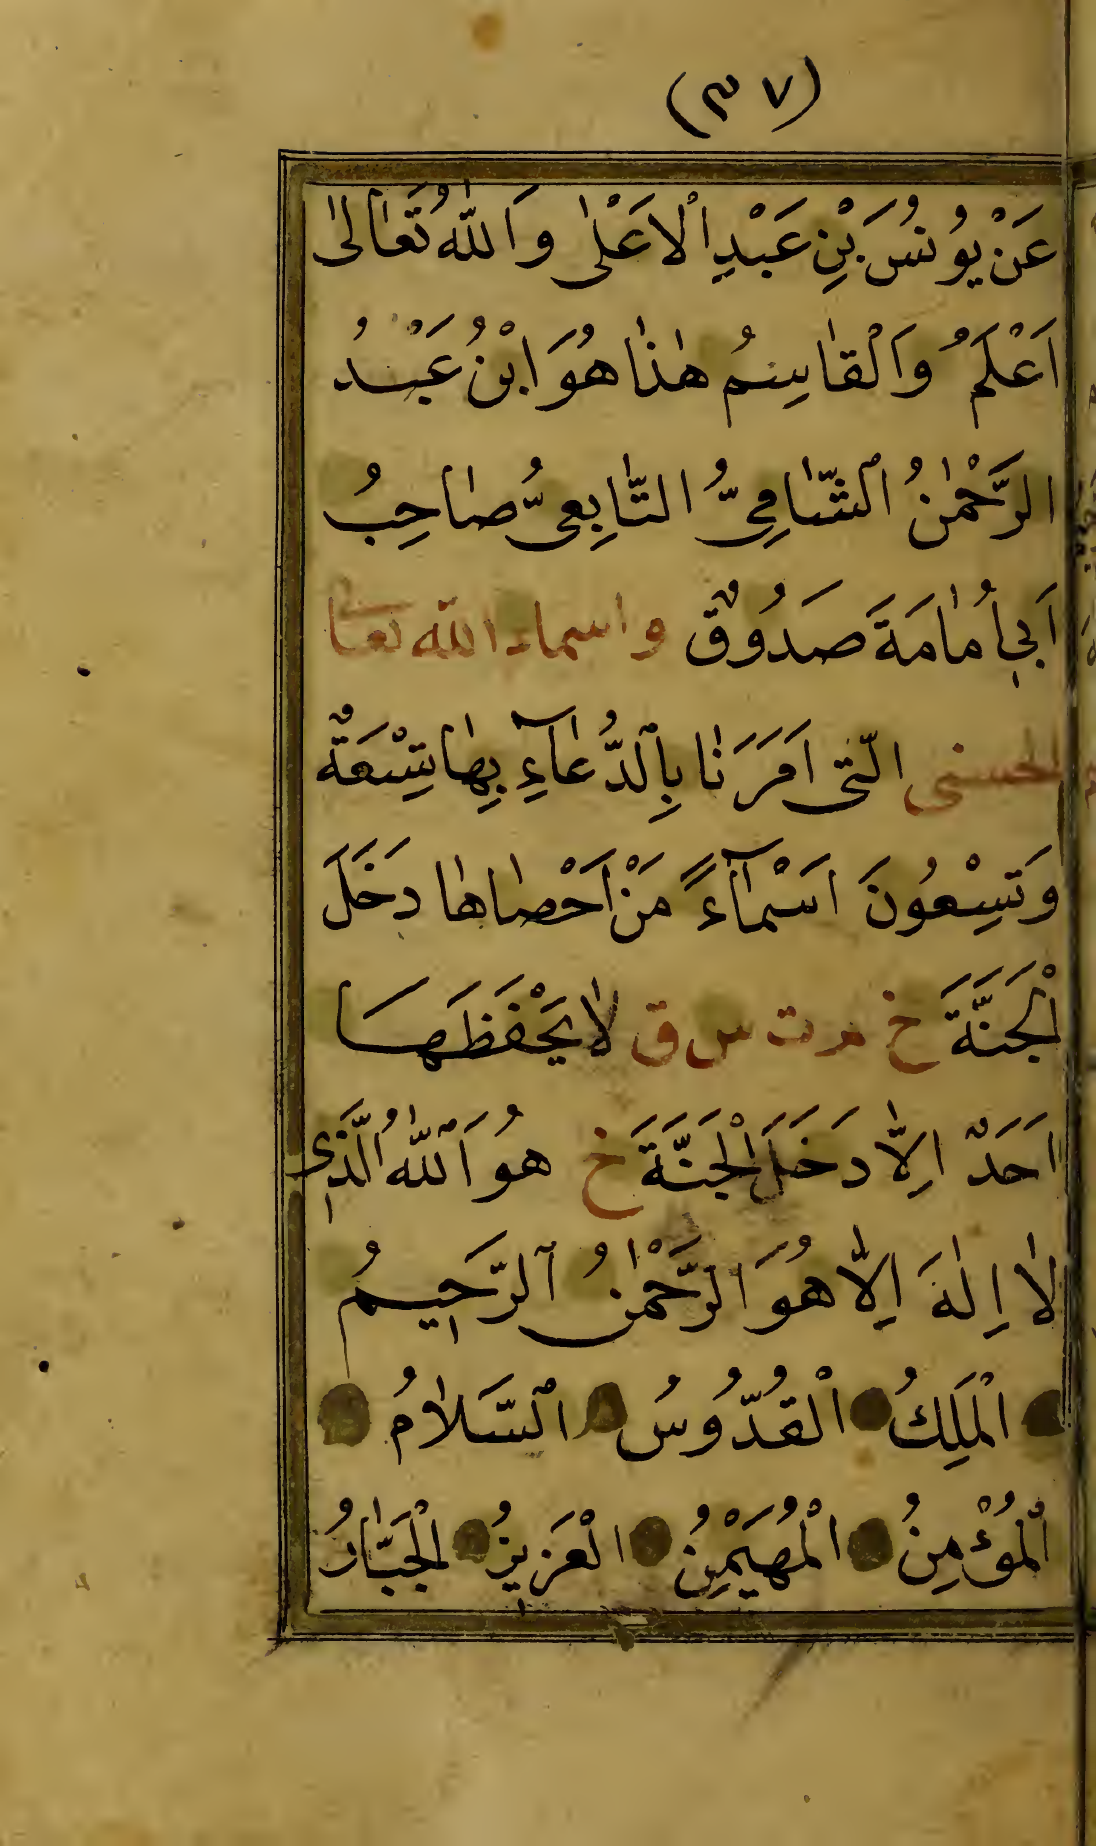 (٣٧)
عَنْ يُونُسَ بْنِ عَبْدِ الْاَعْلٰى وَاللّٰهُ تَعَالٰى
اَعْلَمُ وَالْقَاسِمُ هٰذَا هُوَ ابْنُ عَبْدُ
الرَّحْمٰنُ الشَّامِيُّ التَّابِعِيُّ صَاحِبُ
اَبِي اُمَامَةَ صَدُوقٌ واسماء الله تعا
الحسنى الَّتِى اَمَرَنَا بِالدُّعَآءِ بِهَا تِسْعَةٌ
وَتِسْعُونَ اَسْمَآءً مَنْ اَحْصَاهَا دَخَلَ
الْجَنَّةَ خ م ت س ق لَا يَحْفَظُهَا
اَحَدٌ اِلَّا دَخَلَ الْجَنَّةَ خ هُوَ اللّٰهُ الَّذِى
لَا اِلٰهَ اِلَّا هُوَ الرَّحْمٰنُ الرَّحِيمُ
الْمَلِكُ الْقُدُّوسُ السَّلَامُ
الْمُؤْمِنُ الْمُهَيْمِنُ الْعَزِيزُ الْجَبَّارُ